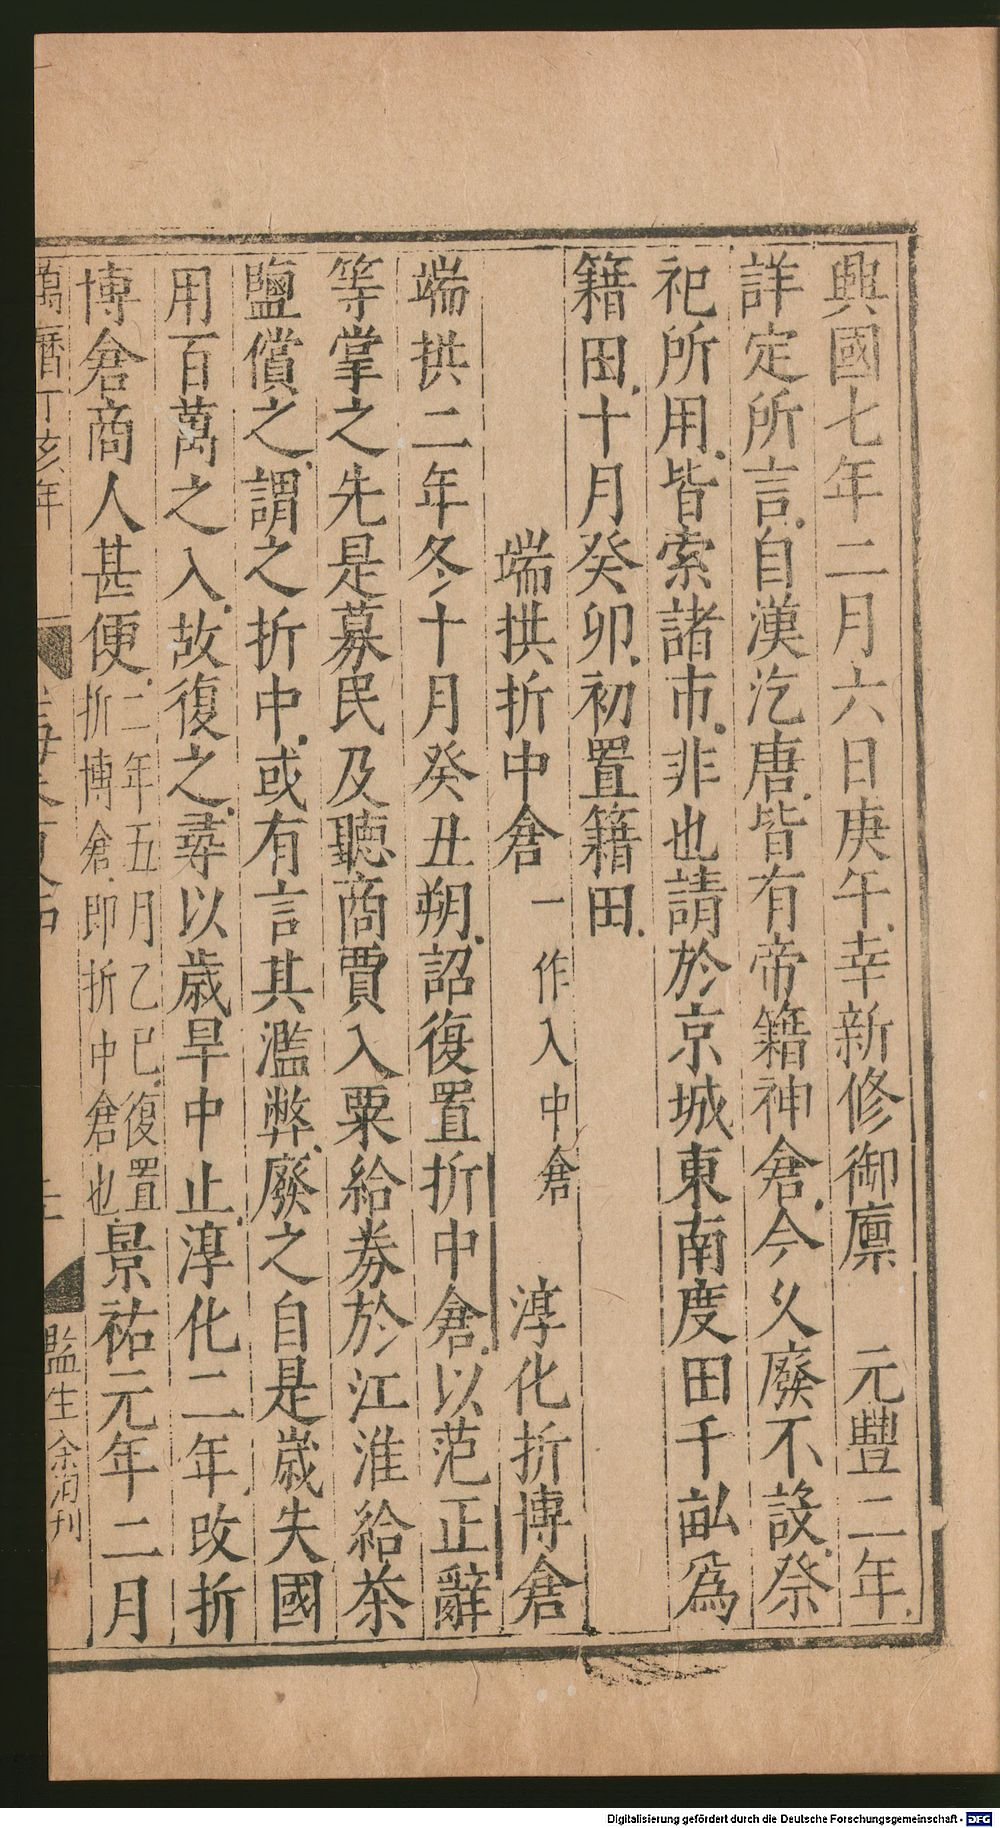 興國七年二月六日庚午幸新修御廪　元豐二年
詳定所言自漢汔唐皆有帝籍神倉今久廢不設祭
祀所用皆索諸市非也請於京城東南度田千畝爲
籍田十月癸卯初置籍田
端拱折中倉 一作入中倉　淳化折博倉
端拱二年冬十月癸丑朔詔復置折中倉以范正辭
等掌之先是募民及聽商賈入粟給券於江淮給茶
鹽償之謂之折中或有言其濫弊廢之自是歲失國
用百萬之入故復之尋以歲旱中止淳化二年改折
博倉商人甚便 二年五月乙巳復置
折博倉即折中倉也 景祐元年二月
萬曆丁亥年
監生余洵刊
Digitalisierung gefördert durch die Deutsche Forschungsgemeinschaft - DFG